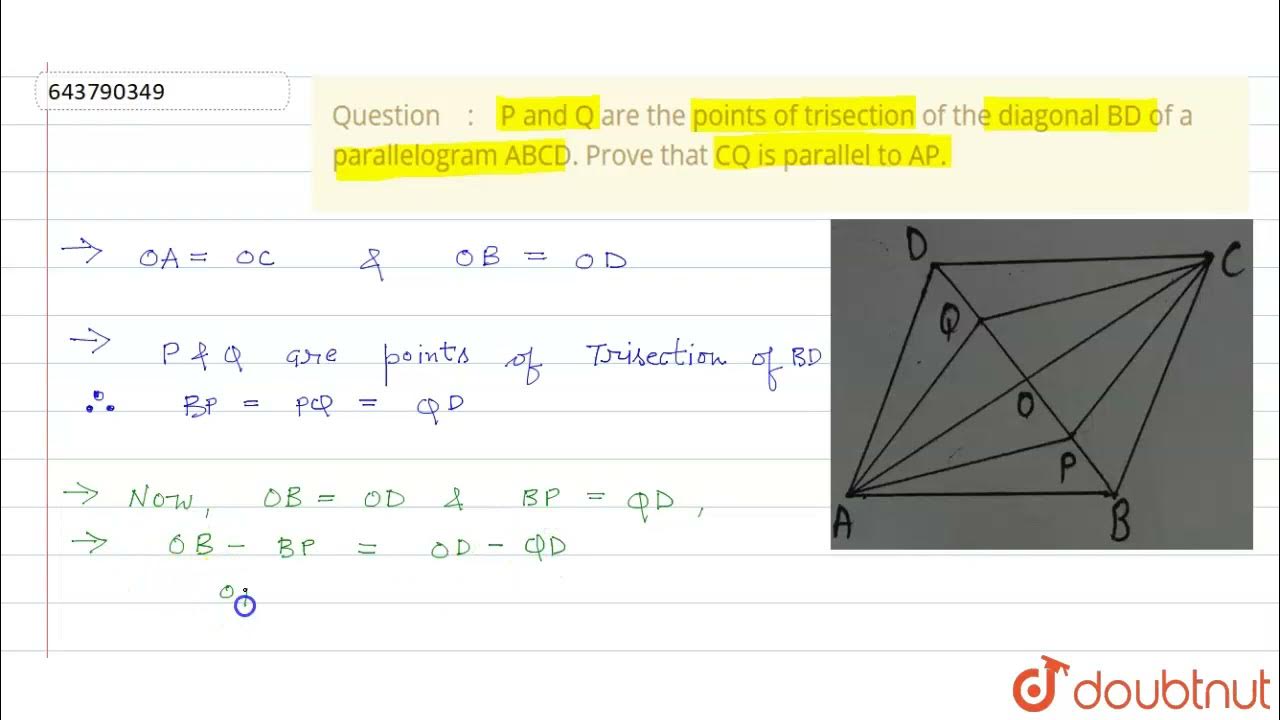 643790349
Question : P and Q are the points of trisection of the diagonal BD of a
parallelogram ABCD. Prove that CQ is parallel to AP.
→ OA = OC & OB = OD
→ P & Q are points of Trisection of BD
∴ BP = PQ = QD
→ Now, OB = OD & BP = QD,
→ OB - BP = OD - QD
O
D
C
Q
O
P
A
B
doubtnut